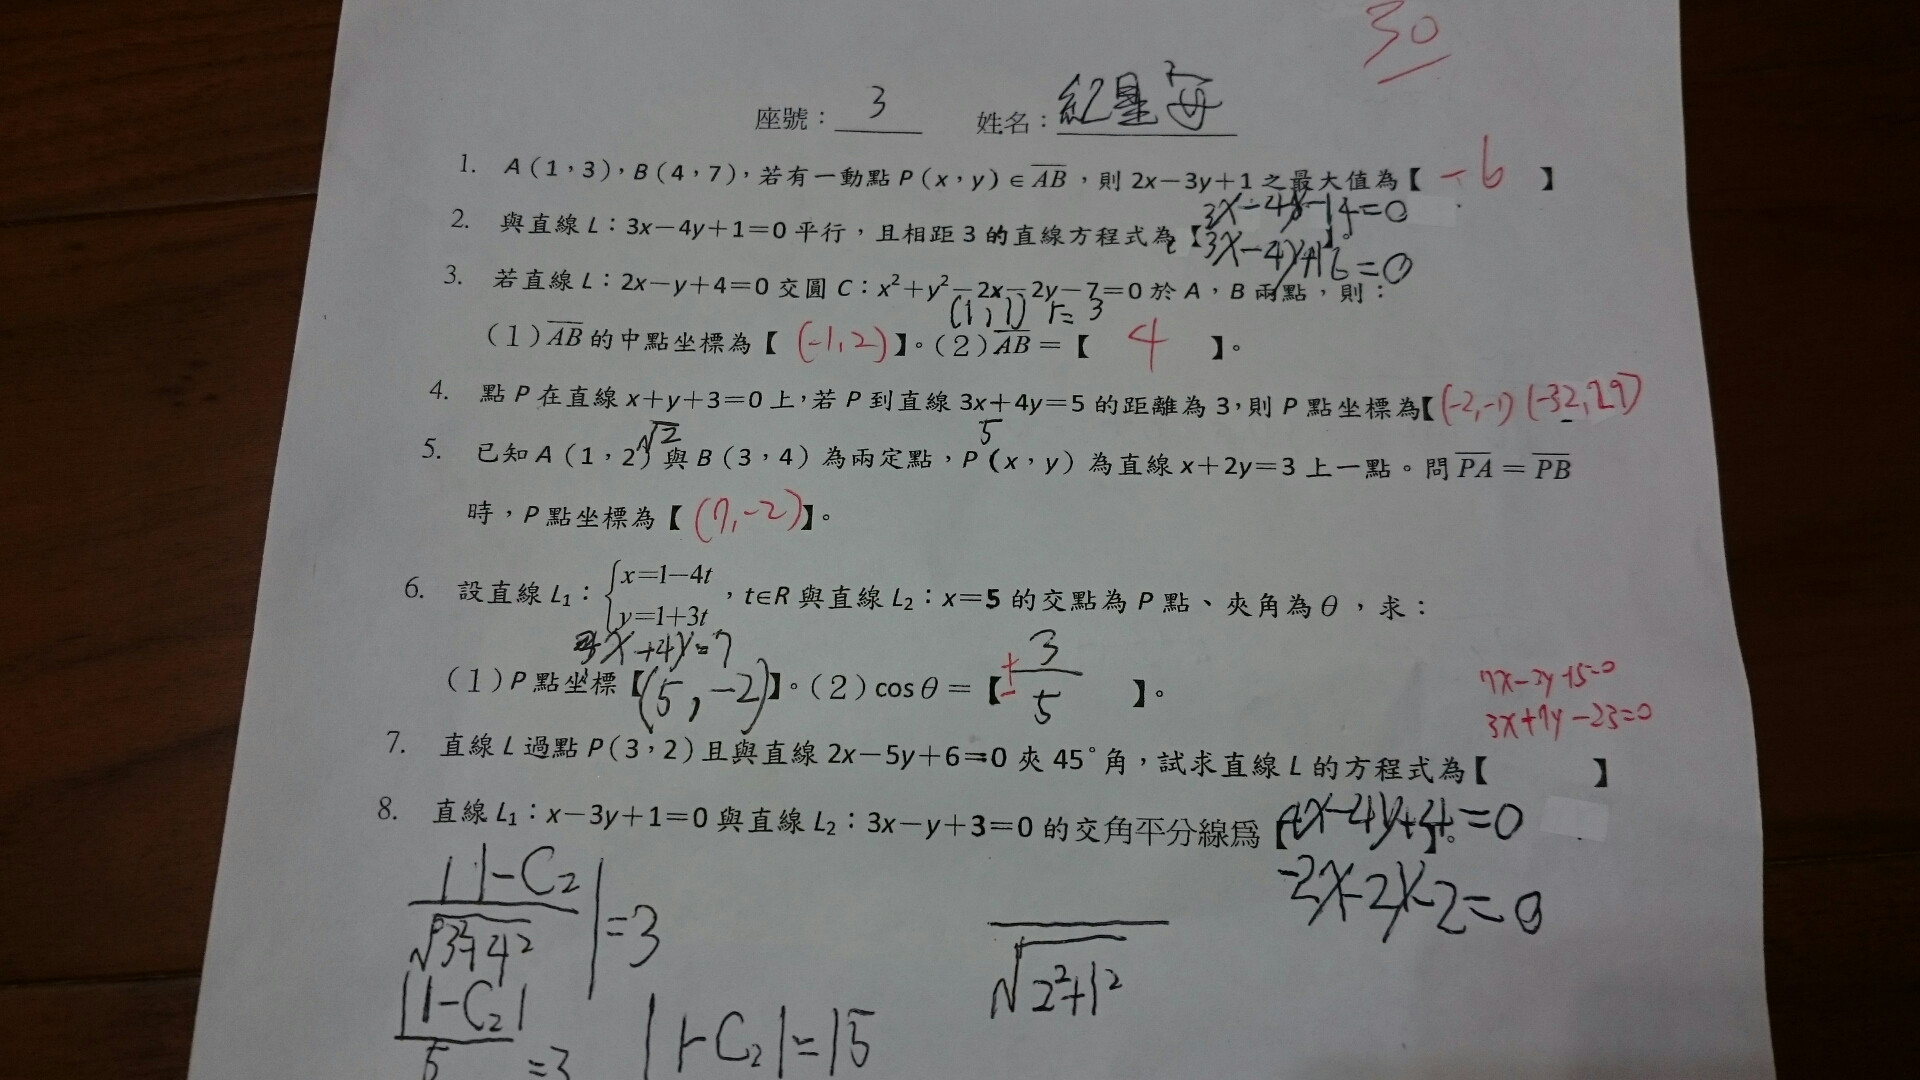 30
座號：3 姓名：紀星
1. A（1，3），B（4，7），若有一動點 P（x，y）∈ AB，則 2x－3y＋1 之最大值為【 -6 】
3x-4y-14=0
2. 與直線 L：3x－4y＋1＝0 平行，且相距 3 的直線方程式為【 3x-4y+16=0 】。
3. 若直線 L：2x－y＋4＝0 交圓 C：x²＋y²－2x－2y－7＝0 於 A，B 兩點，則：
(1,1) r=3
（1）AB 的中點坐標為【 (-1,2) 】。（2）AB＝【 4 】。
4. 點 P 在直線 x＋y＋3＝0 上，若 P 到直線 3x＋4y＝5 的距離為 3，則 P 點坐標為【 (-2,-1) (-32,29)
√2 5
5. 已知 A（1，2）與 B（3，4）為兩定點，P（x，y）為直線 x＋2y＝3 上一點。問 PA＝PB
時，P 點坐標為【 (7,-2) 】。
6. 設直線 L₁：{x＝1－4t y＝1＋3t，t∈R 與直線 L₂：x＝5 的交點為 P 點、夾角為 θ，求：
3x+4y=7
（1）P 點坐標【 (5,-2) 】。（2）cos θ＝【 ±3/5 】。
7x-3y-15=0
3x+7y-23=0
7. 直線 L 過點 P（3，2）且與直線 2x－5y＋6＝0 夾 45°角，試求直線 L 的方程式為【 】
8. 直線 L₁：x－3y＋1＝0 與直線 L₂：3x－y＋3＝0 的交角平分線為【 4x-4y+4=0 】。
-2x-2y-2=0
|1-C₂|/√3²+4² |=3
√2²+1²
|1-C₂|/5 =3
|1-C₂|=15